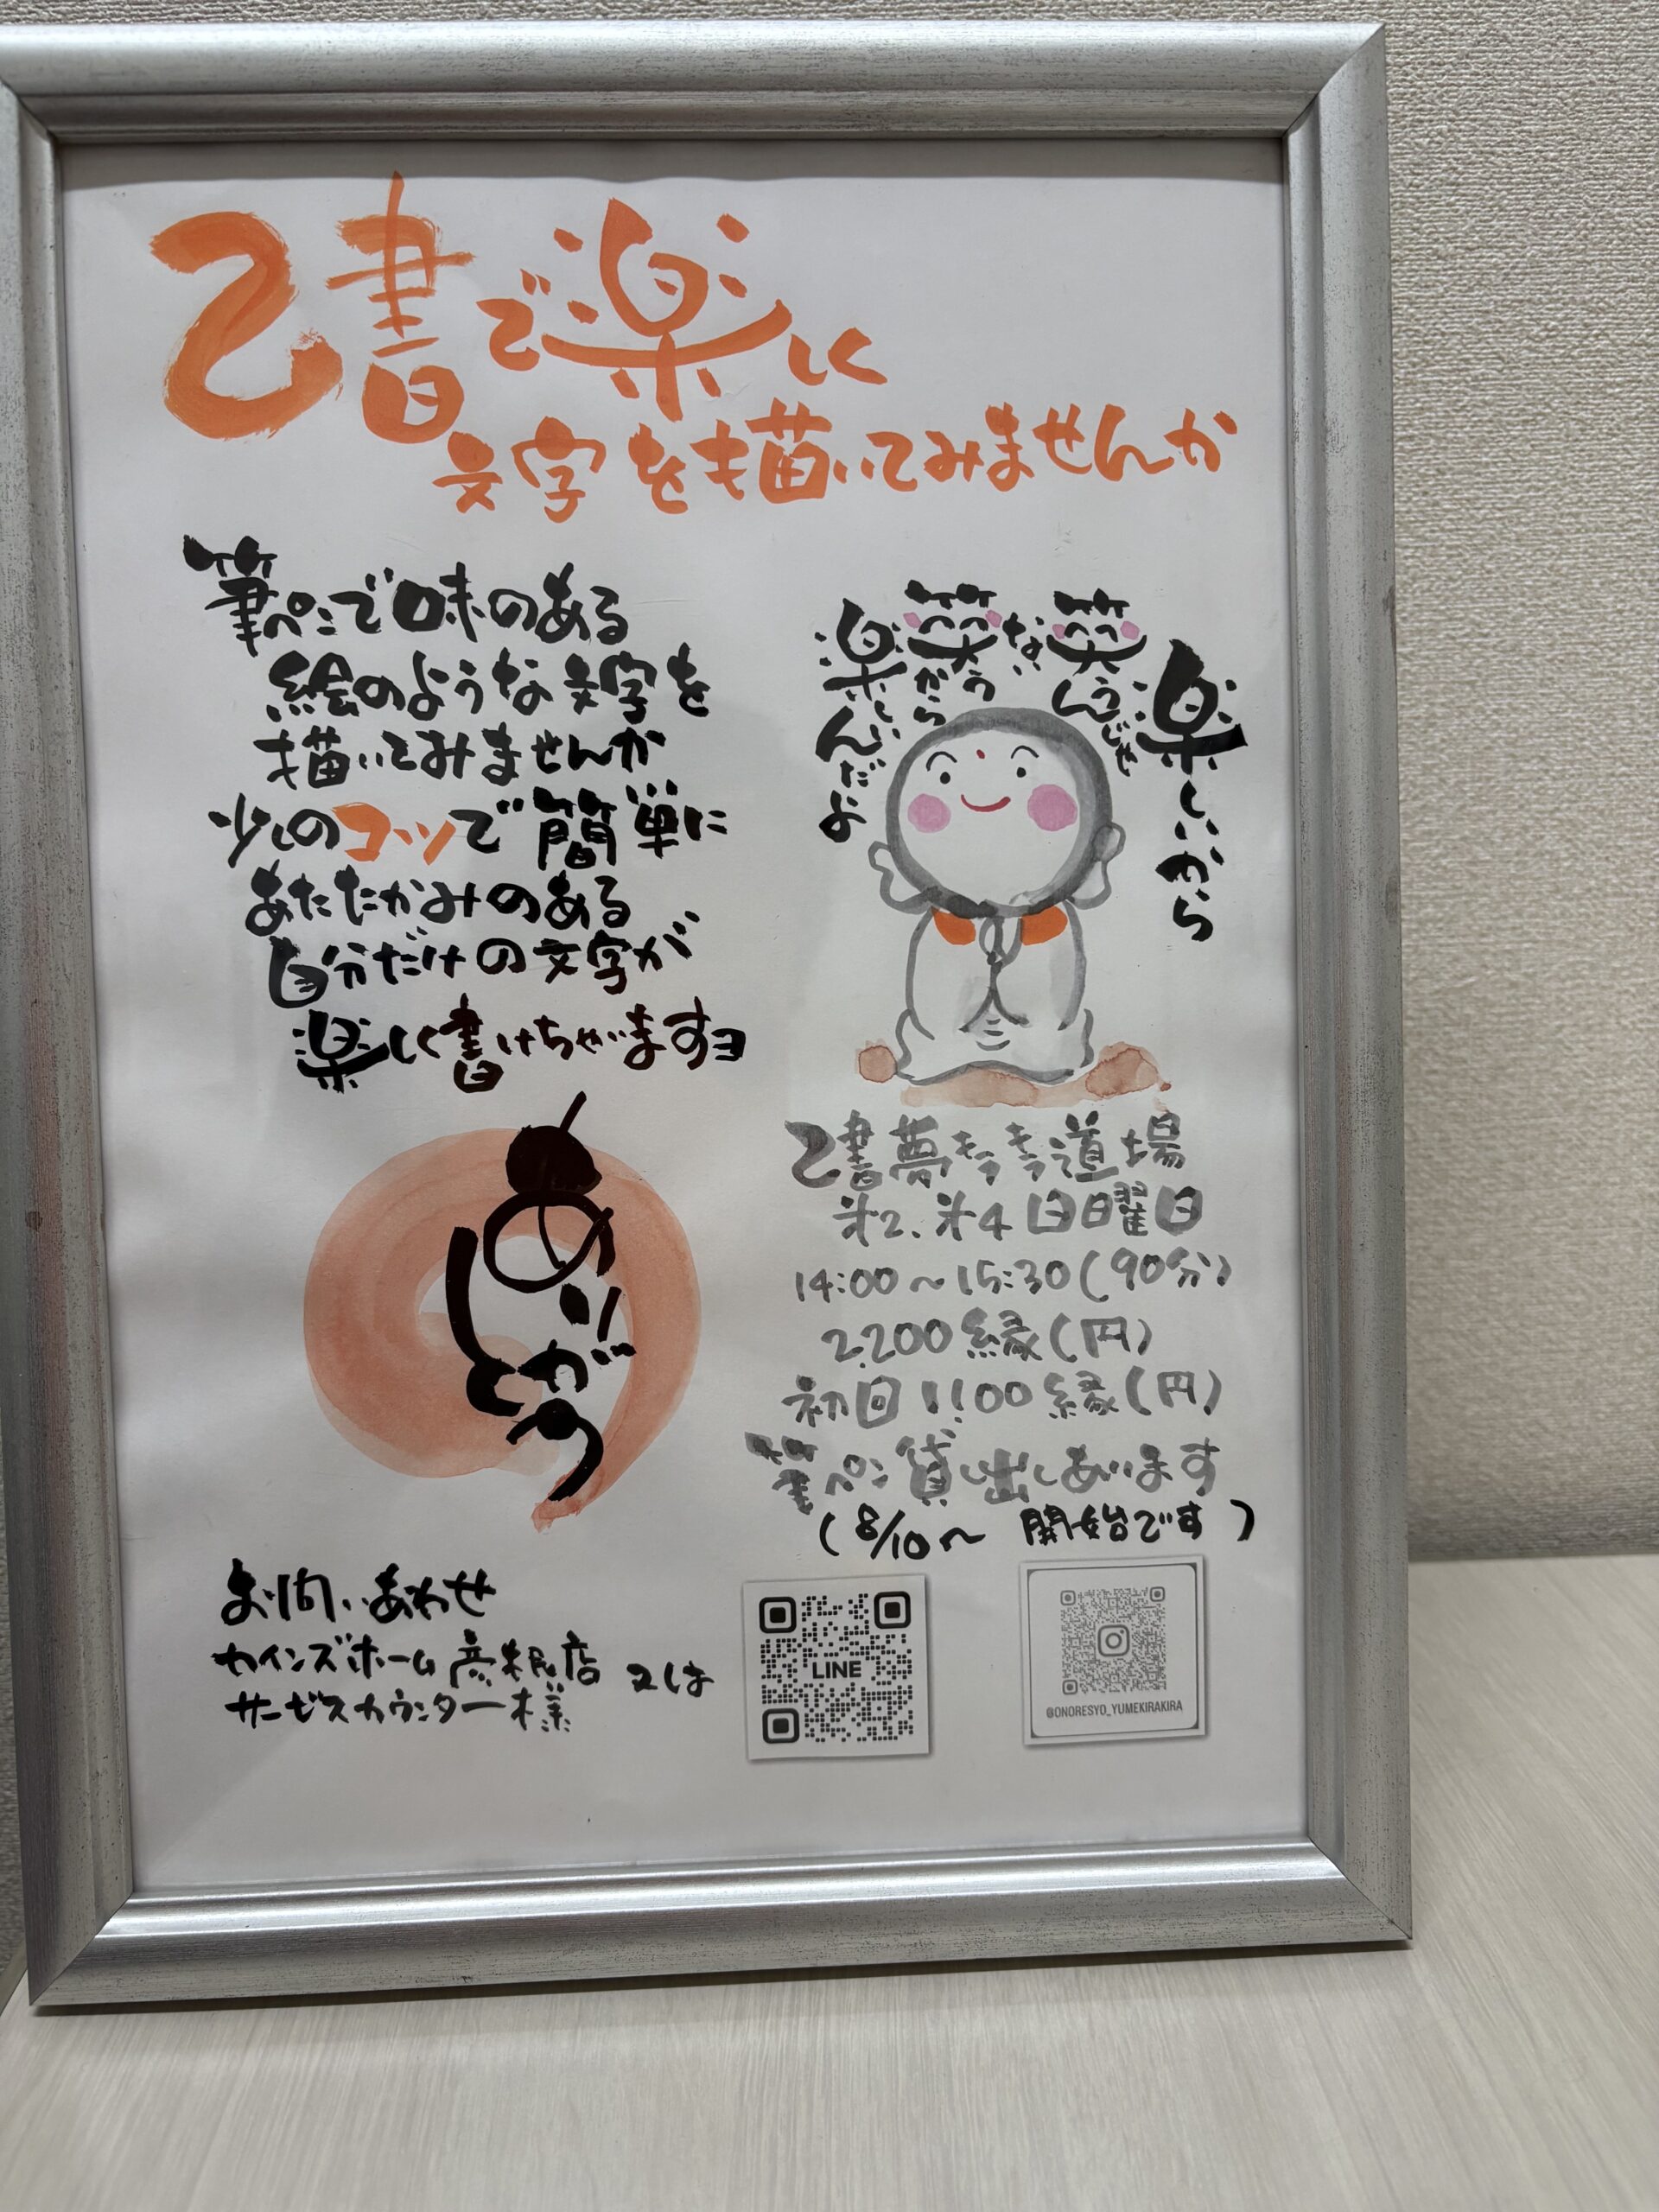 己書で楽しく
文字を描いてみませんか
筆ペンで味のある
絵のような文字を
描いてみませんか
少しのコツで簡単に
あたたかみのある
自分だけの文字が
楽しく書けちゃいますヨ
楽しいから
笑うんじゃ
ない、
笑うから
楽しいんだよ
ありがとう
己書夢キラキラ道場
第2、第4日曜日
14:00～15:30(90分)
2,200縁(円)
初回1,100縁(円)
筆ペン貸し出しあります
(8/10～ 開始です)
お問いあわせ
カインズホーム彦根店 又は
サービスカウンター様
LINE
@ONORESYO_YUMEKIRAKIRA